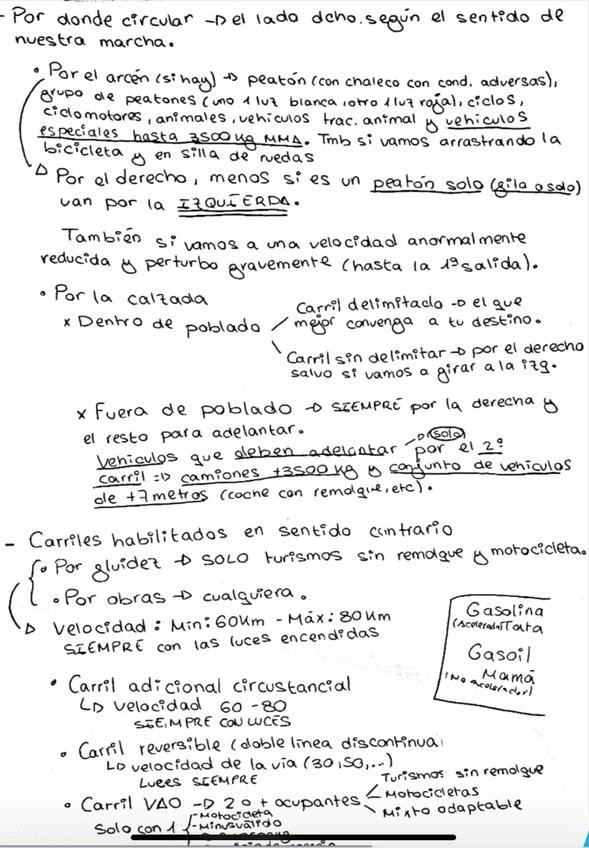 - Por donde circular → el lado dcho. según el sentido de
nuestra marcha.
• Por el arcén (si hay) → peatón (con chaleco con cond. adversas),
grupo de peatones (uno 1 luz blanca, otro 1 luz roja), ciclos,
ciclomotores, animales, vehículos trac. animal y vehículos
especiales hasta 3500 kg MMA. Tmb si vamos arrastrando la
bicicleta y en silla de ruedas
→ Por el derecho, menos si es un peatón solo (fila o solo)
van por la IZQUIERDA.
También si vamos a una velocidad anormalmente
reducida y perturbo gravemente (hasta la 1ª salida).
• Por la calzada
x Dentro de poblado
Carril delimitado → el que
mejor convenga a tu destino.
Carril sin delimitar → por el derecho
salvo si vamos a girar a la izq.
x Fuera de poblado → SIEMPRE por la derecha y
el resto para adelantar.
Vehículos que deben adelantar → solo por el 2º
carril => camiones +3500 kg y conjunto de vehículos
de +7 metros (coche con remolque, etc).
- Carriles habilitados en sentido contrario
• Por fluidez → SOLO turismos sin remolque y motocicleta.
• Por obras → cualquiera.
→ Velocidad: Min: 60 km - Máx: 80 km
SIEMPRE con las luces encendidas
Gasolina
(Acelerador) Tata
Gasoil
Mamá
(No acelerador)
• Carril adicional circustancial
↳ Velocidad 60 - 80
SIEMPRE CON LUCES
• Carril reversible (doble línea discontinua)
↳ velocidad de la vía (30, 50, ...)
Luces SIEMPRE
• Carril VAO → 2 o + ocupantes
Turismos sin remolque
Motocicletas
Mixto adaptable
Solo con 1
- Motocicleta
- Minusválido